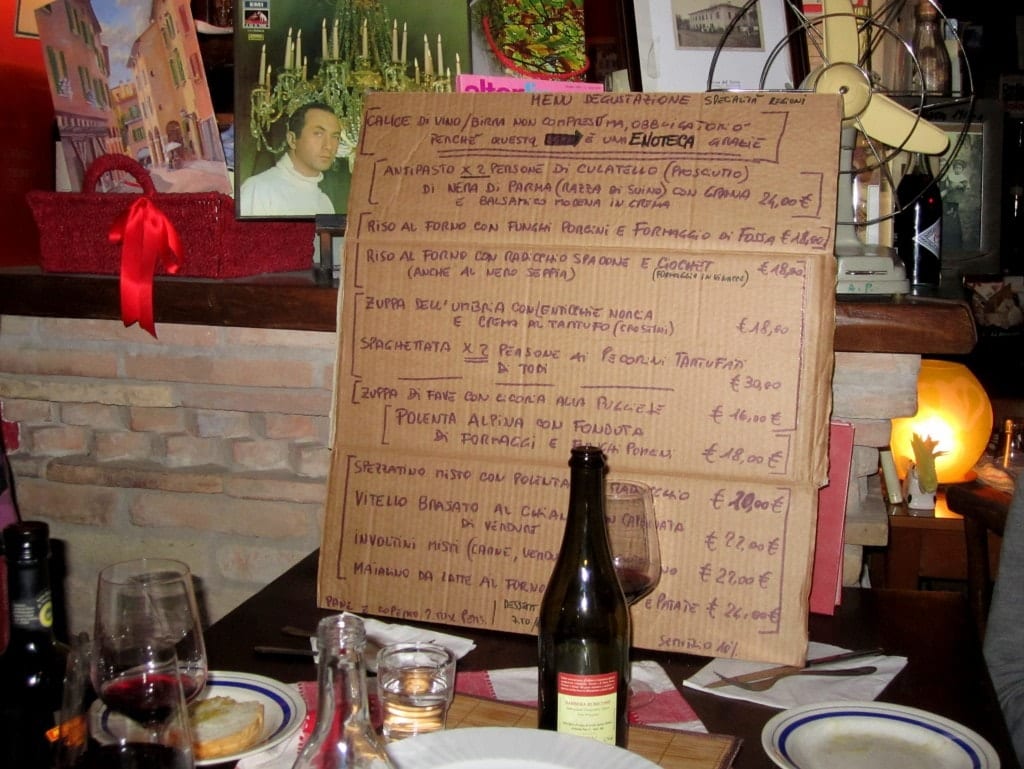 EMI
MENU DEGUSTAZIONE SPECIALITÀ REGIONI
CALICE DI VINO/BIRRA NON COMPRESI MA, OBBLIGATORIO
PERCHÉ QUESTA È UNA ENOTECA GRAZIE
ANTIPASTO X 2 PERSONE DI CULATELLO (PROSCIUTTO)
DI NERA DI PARMA (RAZZA DI SUINO) CON GRANA
E BALSAMICO MODENA IN CREMA 24,00€
RISO AL FORNO CON FUNGHI PORCINI E FORMAGGIO DI FOSSA €18,00
RISO AL FORNO CON RADICCHIO SPADONE E €18,00
(ANCHE AL NERO SEPPIA) (FORMAGGIO IN
ZUPPA DELL'UMBRIA CON LENTICCHIE NORCIA
E CREMA AL TARTUFO (CROSTINI) €18,00
SPAGHETTATA X 2 PERSONE AI PECORINI TARTUFATI
DI TODI €30,00
ZUPPA DI FAVE CON CICORIA ALLA PUGLIESE €16,00
POLENTA ALPINA CON FONDUTA
DI FORMAGGI E FUNGHI PORCINI €18,00
SPEZZATINO MISTO CON POLENTA RADICCHIO €20,00
VITELLO BRASATO AL
DI VERDURE €22,00€
INVOLTINI MISTI (CARNE, €22,00€
MAIALINO DA LATTE AL FORNO E PATATE €24,00€
PANE E COPERTO PERS. DESSERT
SERVIZIO 10%